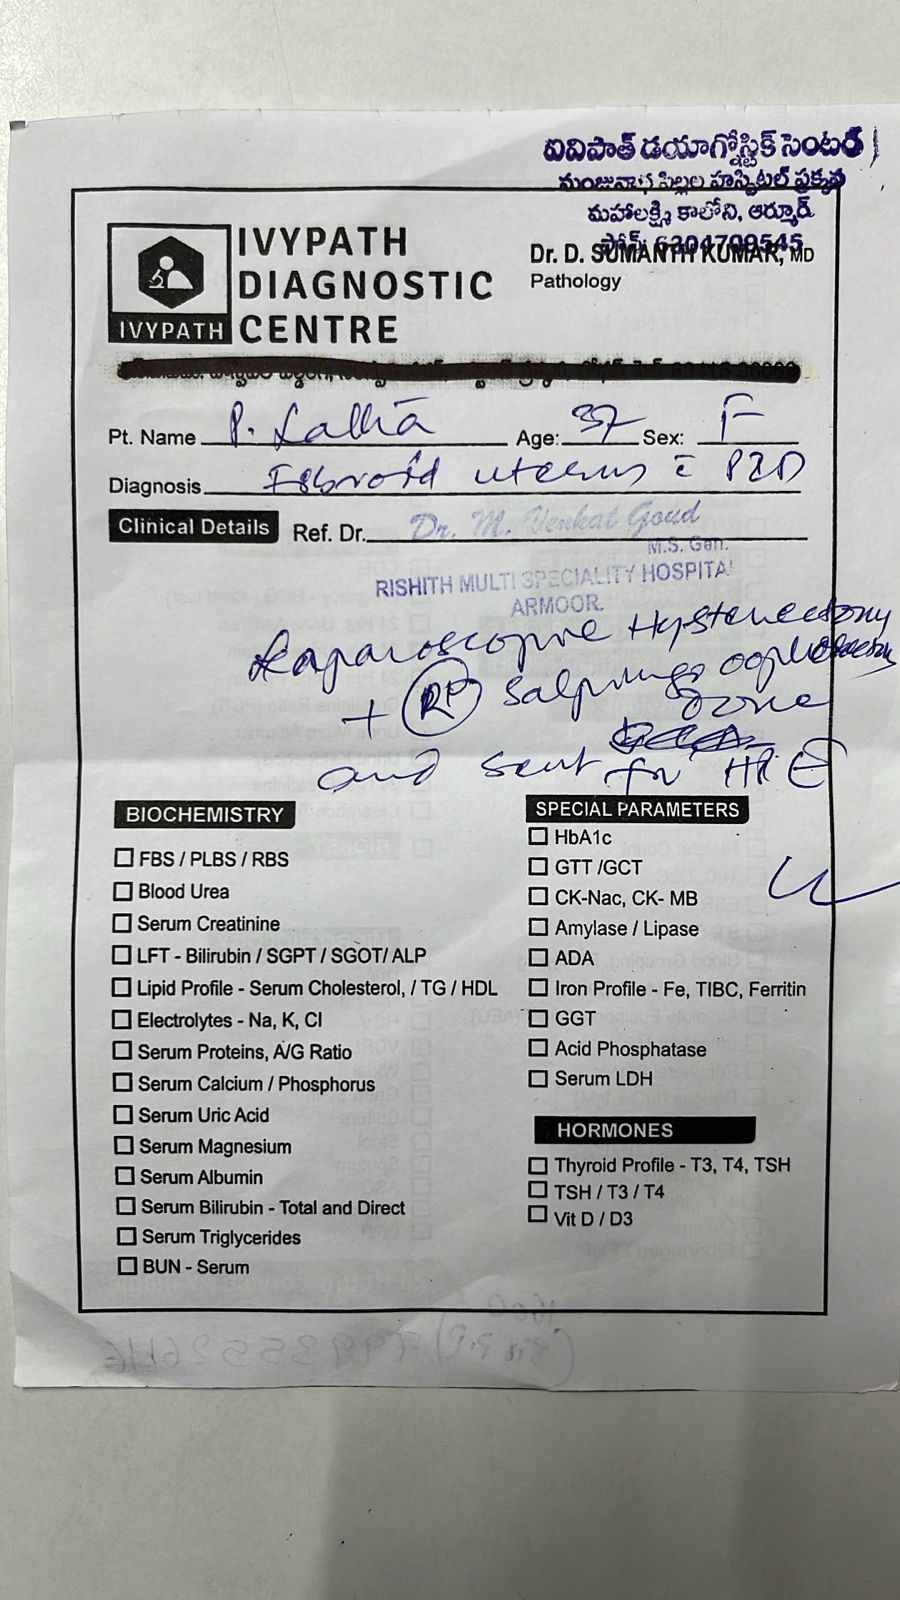 ఐవిపాత్ డయాగ్నోస్టిక్ సెంటర్
మంజునాథ పిల్లల హస్పిటల్ ప్రక్కన
మహాలక్ష్మి కాలోని, ఆర్మూర్
ఫోన్: 6304709545
IVYPATH
DIAGNOSTIC
CENTRE
IVYPATH
Dr. D. SUMANTH KUMAR, MD
Pathology
Pt. Name P. Latha Age: 37 Sex: F
Diagnosis Fibroid uterus c̄
Clinical Details Ref. Dr. Dr. M. Venkat Goud
M.S. Gen.
RISHITH MULTI SPECIALITY HOSPITAL
ARMOOR.
Laparoscopic Hysterectomy
+ Salpingo oophorectomy
done
and sent for HPE
BIOCHEMISTRY
FBS / PLBS / RBS
Blood Urea
Serum Creatinine
LFT - Bilirubin / SGPT / SGOT/ ALP
Lipid Profile - Serum Cholesterol, / TG / HDL
Electrolytes - Na, K, Cl
Serum Proteins, A/G Ratio
Serum Calcium / Phosphorus
Serum Uric Acid
Serum Magnesium
Serum Albumin
Serum Bilirubin - Total and Direct
Serum Triglycerides
BUN - Serum
SPECIAL PARAMETERS
HbA1c
GTT /GCT
CK-Nac, CK- MB
Amylase / Lipase
ADA
Iron Profile - Fe, TIBC, Ferritin
GGT
Acid Phosphatase
Serum LDH
HORMONES
Thyroid Profile - T3, T4, TSH
TSH / T3 / T4
Vit D / D3